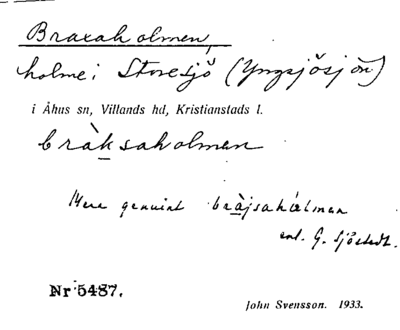 Braxaholmen,
holme i Storesjö (Yngsjösjön)
i Åhus sn, Villands hd, Kristianstads l.
bràksaholmen
Mera genuint bràjsahólman
enl. G. Sjöstedt.
Nr 5487.
John Svensson. 1933.